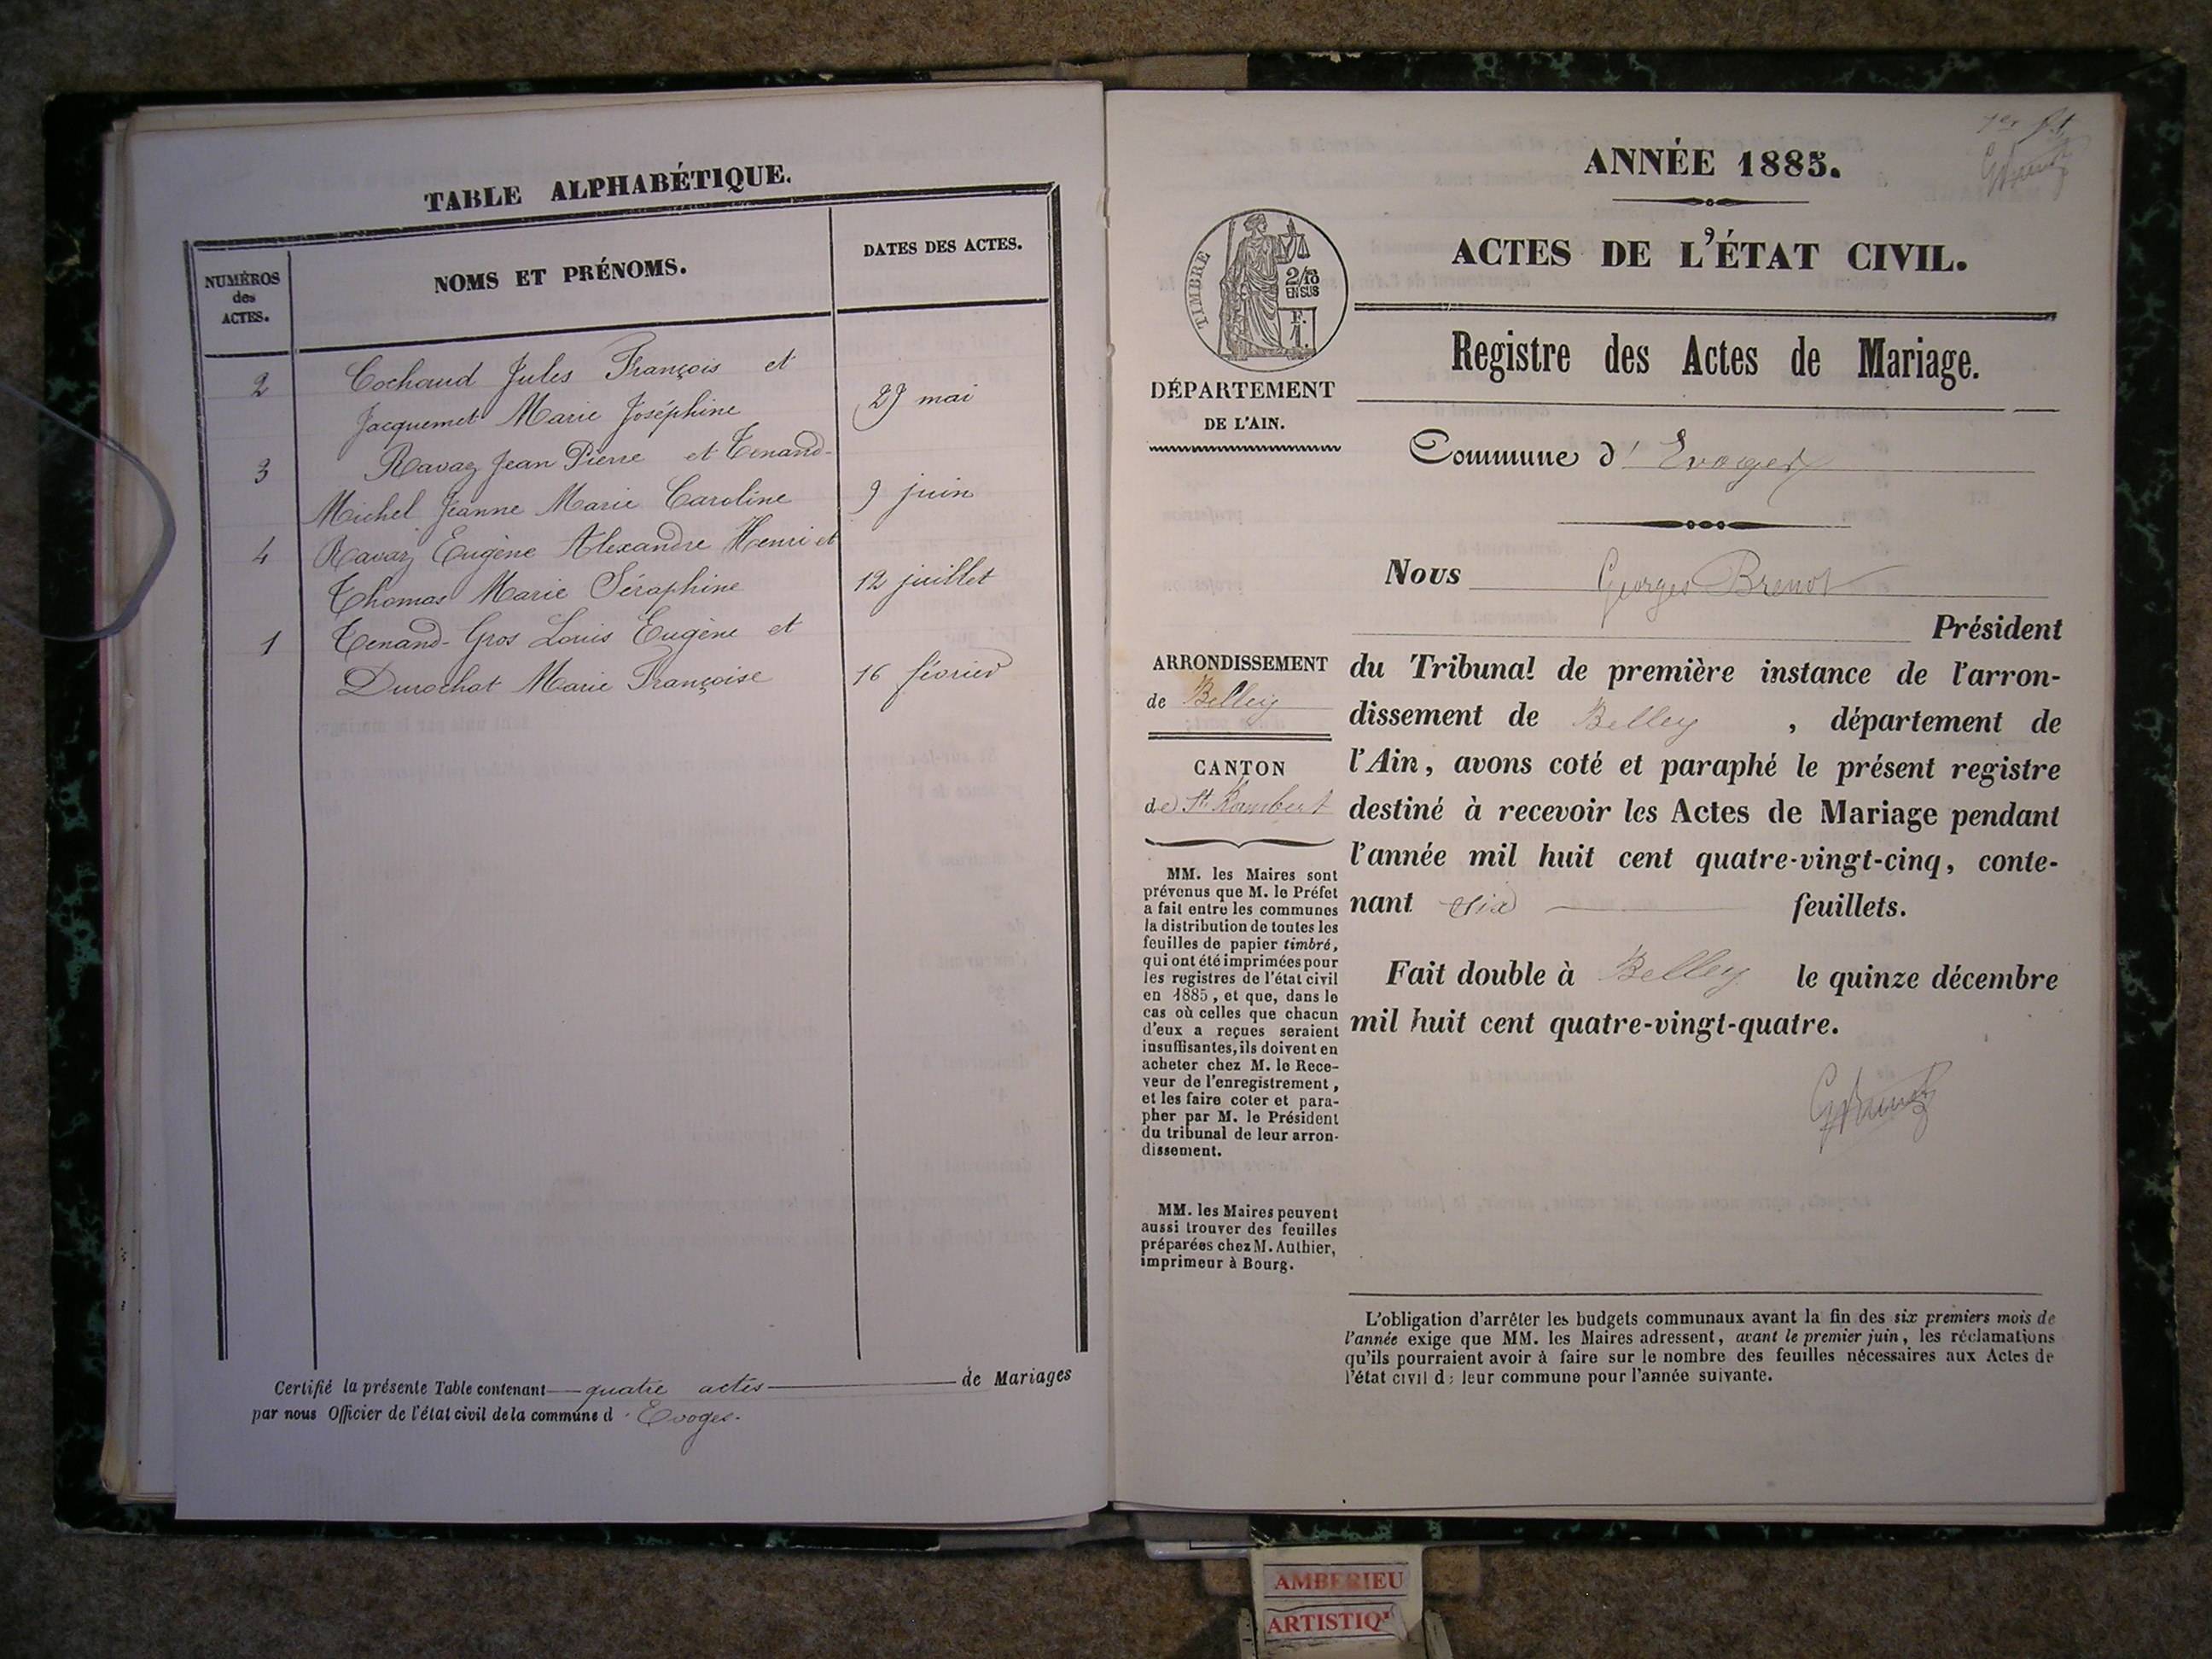 TABLE ALPHABÉTIQUE.
NUMÉROS
des
ACTES.
NOMS ET PRÉNOMS.
DATES DES ACTES.
2 Cochaud Jules François et
Jacquemet Marie Joséphine 27 mai
3 Ravaz Jean Pierre et Tenand-
Michel Jeanne Marie Caroline 9 juin
4 Ravaz Eugène Alexandre Henri et
Thomas Marie Séraphine 12 juillet
1 Tenand-Gros Louis Eugène et
Durochat Marie Françoise 16 février
Certifié la présente Table contenant quatre actes de Mariages
par nous Officier de l'état civil de la commune d'Evoges.
ANNÉE 1885.
ACTES DE L'ÉTAT CIVIL.
TIMBRE
2/10
EN SUS
F.
1.
Registre des Actes de Mariage.
DÉPARTEMENT
DE L'AIN.
Commune d'Evoges
Nous Georges Brenot
Président
ARRONDISSEMENT
de Belley
CANTON
de St Rambert
du Tribunal de première instance de l'arron-
dissement de Belley, département de
l'Ain, avons coté et paraphé le présent registre
destiné à recevoir les Actes de Mariage pendant
l'année mil huit cent quatre-vingt-cinq, conte-
nant six feuillets.
Fait double à Belley le quinze décembre
mil huit cent quatre-vingt-quatre.
MM. les Maires sont
prévenus que M. le Préfet
a fait entre les communes
la distribution de toutes les
feuilles de papier timbré,
qui ont été imprimées pour
les registres de l'état civil
en 1885, et que, dans le
cas où celles que chacun
d'eux a reçues seraient
insuffisantes, ils doivent en
acheter chez M. le Rece-
veur de l'enregistrement,
et les faire coter et para-
pher par M. le Président
du tribunal de leur arron-
dissement.
MM. les Maires peuvent
aussi trouver des feuilles
préparées chez M. Authier,
imprimeur à Bourg.
L'obligation d'arrêter les budgets communaux avant la fin des six premiers mois de
l'année exige que MM. les Maires adressent, avant le premier juin, les réclamations
qu'ils pourraient avoir à faire sur le nombre des feuilles nécessaires aux Actes de
l'état civil de leur commune pour l'année suivante.
AMBERIEU
ARTISTIQ